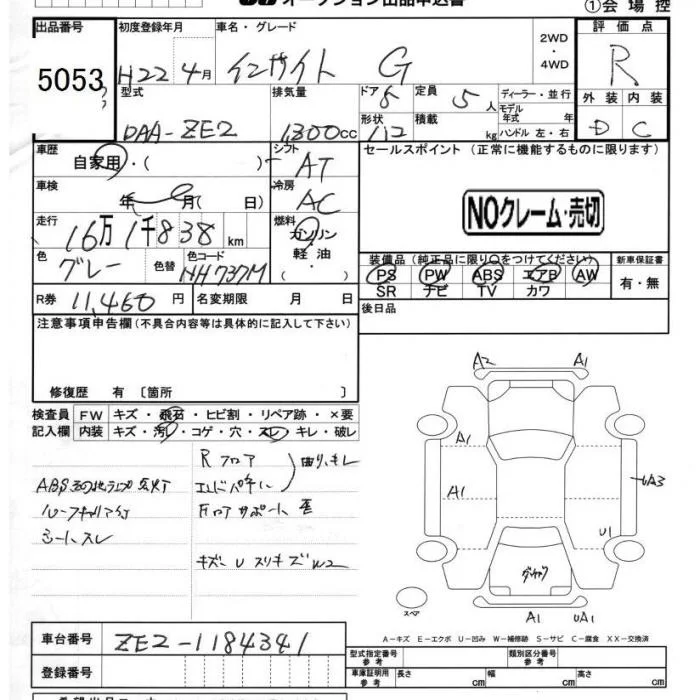 オークション出品申込書
①会場控
出品番号
5053
初度登録年月
H22 4月
車名・グレード
インサイト G
2WD
・
4WD
評価点
R
外装 内装
D C
型式
DAA-ZE2
排気量
1300cc
ドア
定員
5人
形状
積載
kg
ディーラー・並行
モデル
年式 年
ハンドル 左・右
車歴
自家用・( )
シフト
AT
車検
年 月( 日)
冷房
AC
走行
16万1千838km
燃料
ガソリン
軽油・
( )
色
グレー
色替
色コード
NH737M
R券 11,460円
名変期限 月 日
セールスポイント (正常に機能するものに限ります)
NOクレーム・売切
装備品(純正品に限り○をつけてください)
PS PW ABS エアB AW
SR ナビ TV カワ
新車保証書
有・無
後日品
注意事項申告欄(不具合内容等は具体的に記入して下さい)
修復歴 有 〔箇所 〕
検査員
記入欄
FW キズ・飛石・ヒビ割・リペア跡・×要
内装 キズ・汚レ・コゲ・穴・スレ・キレ・破レ
Rフロア
曲り、キレ
Fロアサポート 歪
シートスレ
キズ、U スリキズ W2
A2 A1
A1
A1
UA3
U1
A1 UA1
スペア
A-キズ E-エクボ U-凹み W-補修跡 S-サビ C-腐食 XX-交換済
車台番号 ZE2-1184341
登録番号
型式指定番号
参考
類別区分番号
参考
車庫証明用
参考
長さ cm 幅 cm 高さ cm